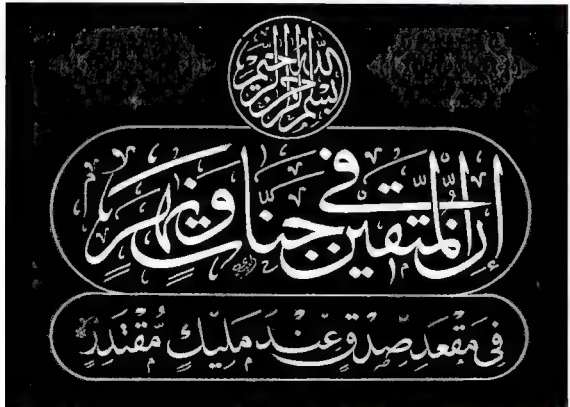 بسم الله الرحمن الرحيم
إن المتقين في جنات ونهر
في مقعد صدق عند مليك مقتدر